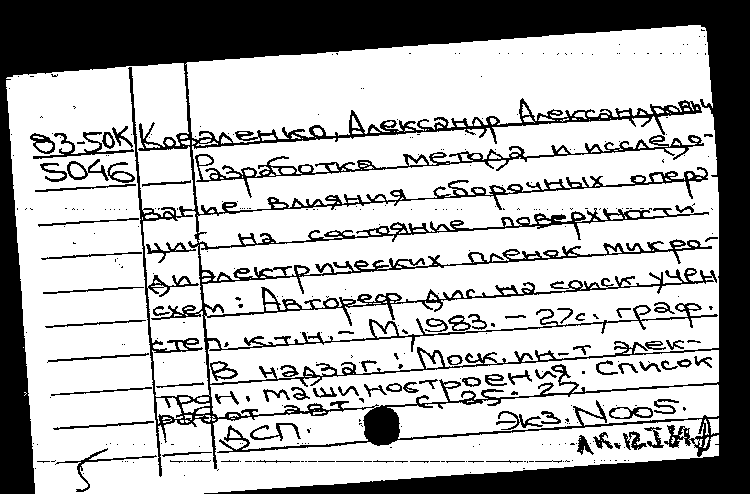 83-50К Коваленко, Александр Александрович
5046 Разработка метода и исследо-
вание влияния сборочных опера-
ций на состояние поверхности
диэлектрических пленок микро-
схем: Автореф. дис. на соиск. учен.
степ. к.т.н. – М., 1983. – 27с., граф.
В надзаг.: Моск. ин-т элек-
трон. машиностроения. Список
работ авт. с. 25-27.
ДСП. Экз. N005.